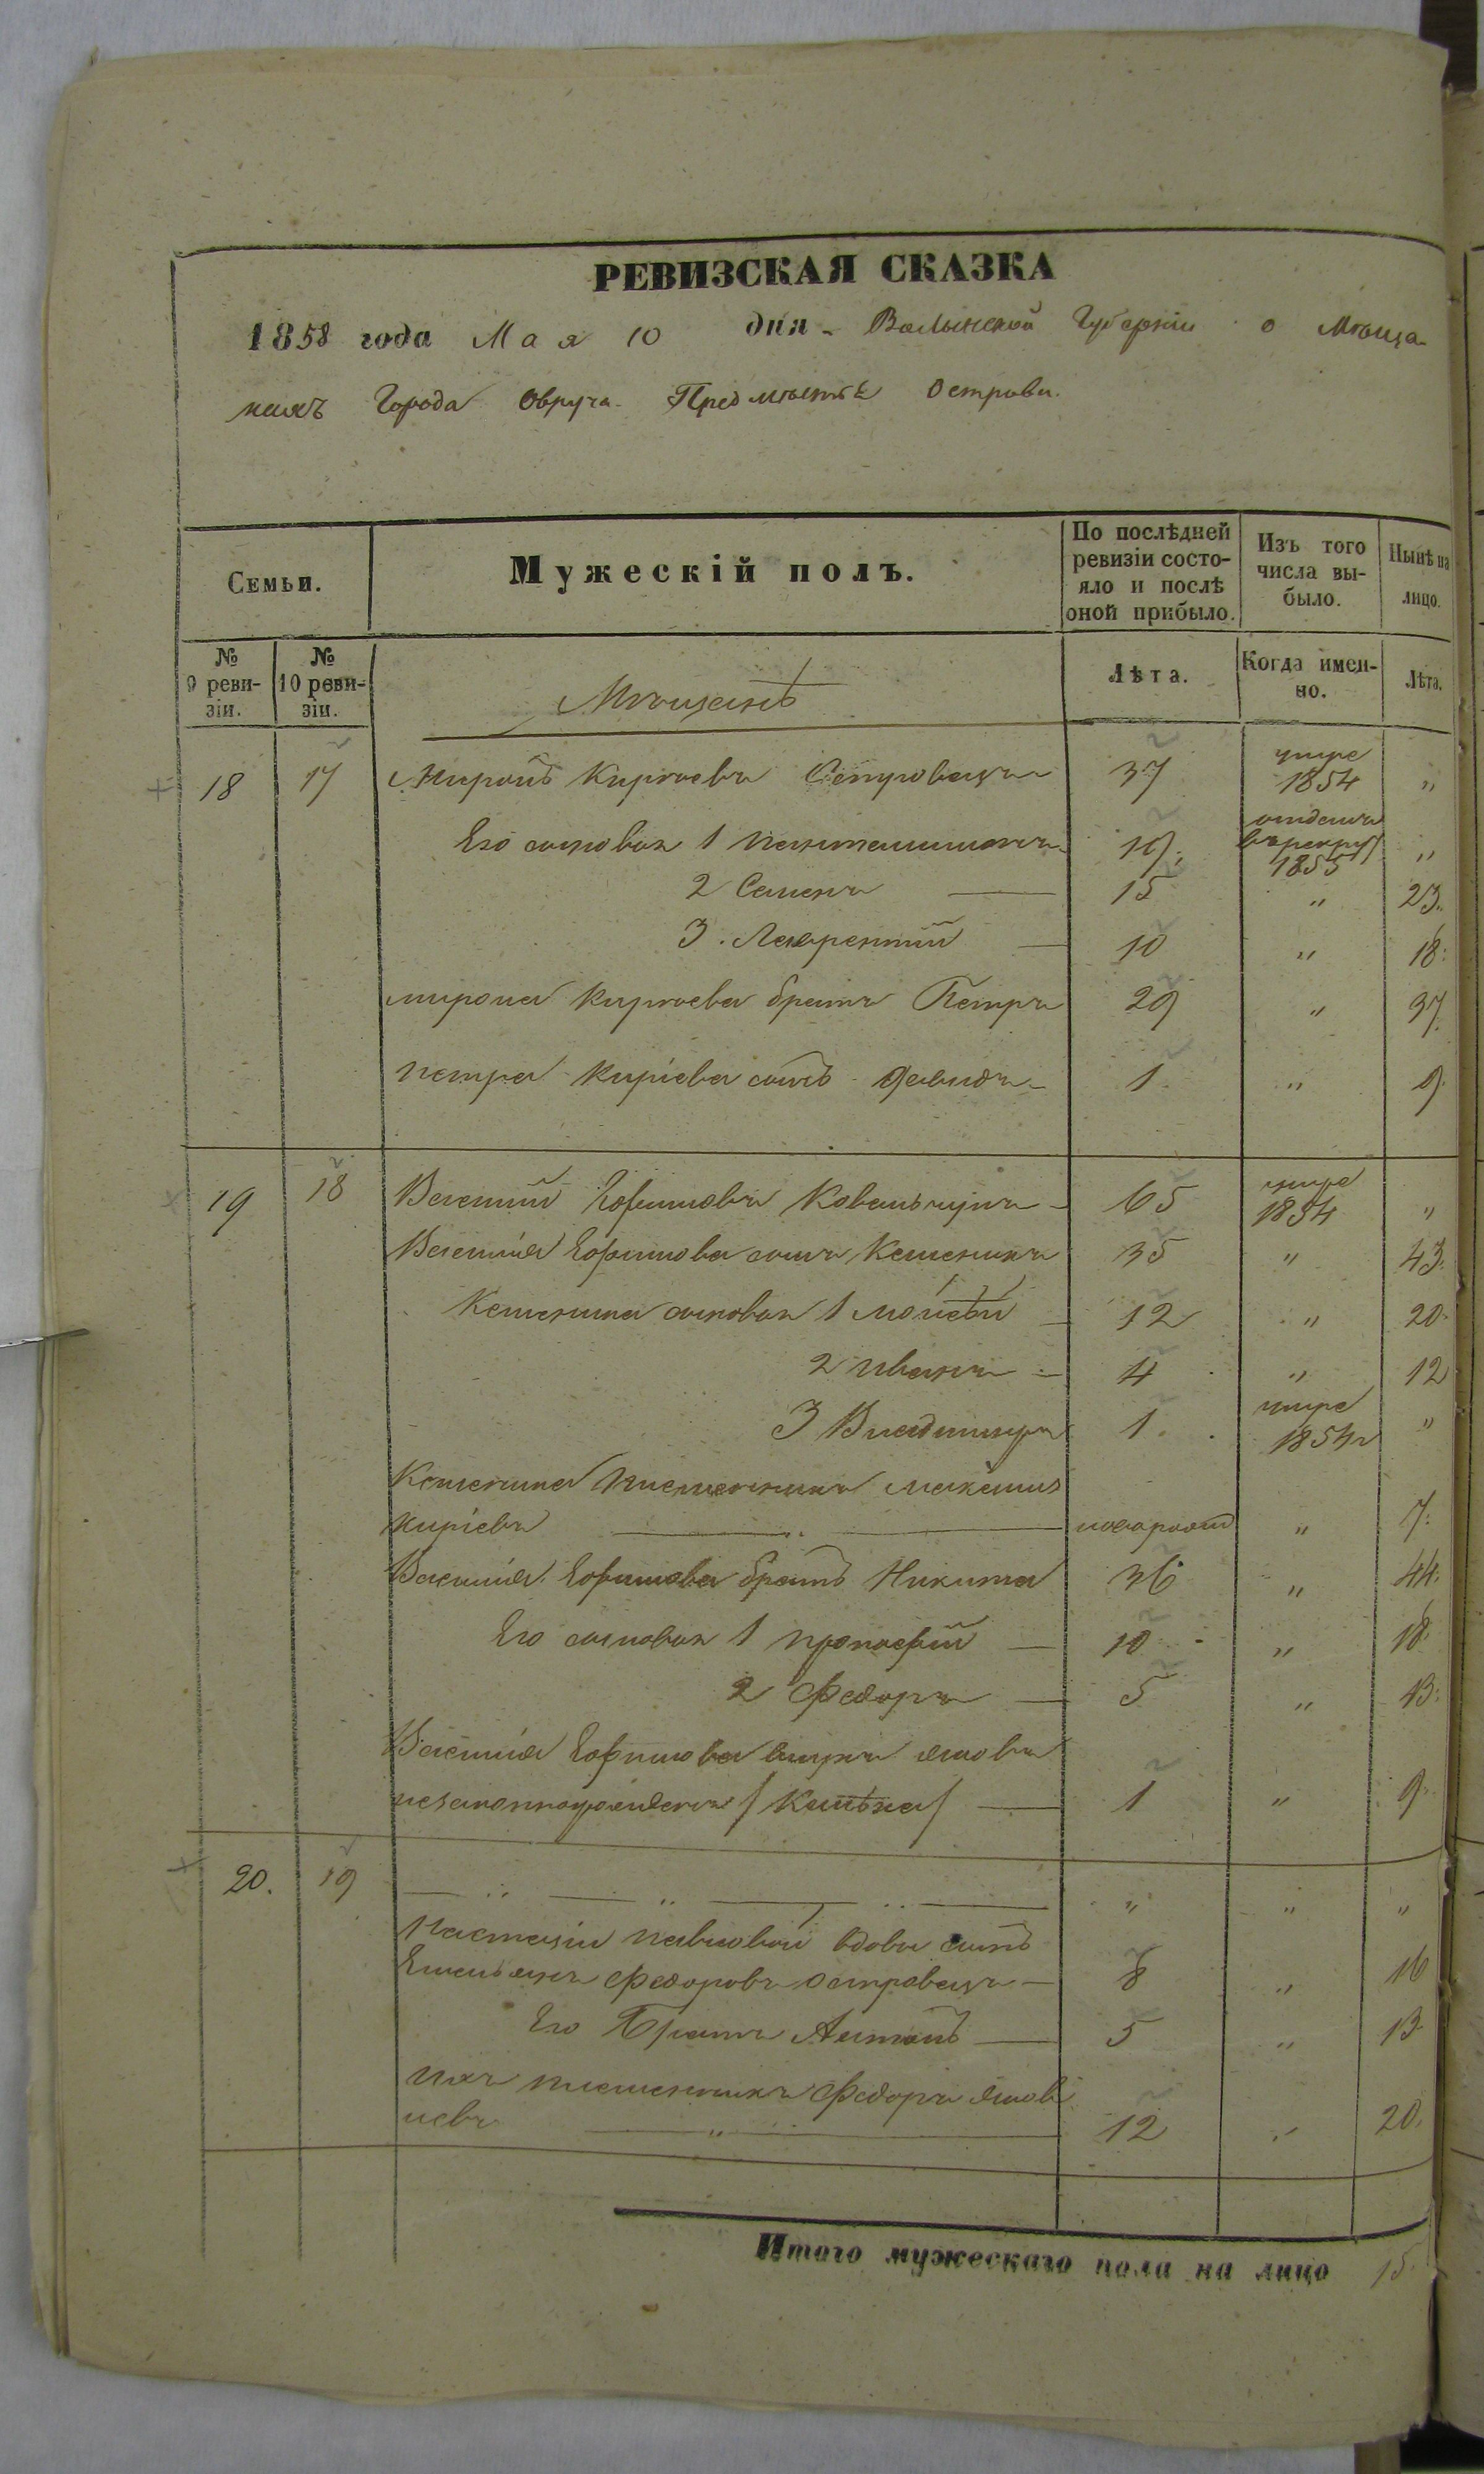 РЕВИЗСКАЯ СКАЗКА
1858 года Мая 10 дня - Волынской Губернии о Мѣща-
нахъ Города Овруча Предмѣстьѣ Острови.
Семьи.
Мужескій полъ.
По послѣдней ревизіи состо-яло и послѣ оной прибыло.
Изъ того числа вы-было.
Нынѣ на лицо.
№ 9 реви-зіи.
№ 10 реви-зіи.
Мѣщанѣ
Лѣта.
Когда имен-но.
Лѣта.
18 17 Миронъ Киріевъ 37 умре 1854 „
Его сыновья 1 19 отданъ въ рекруты 1855 „
2 Семенъ — 15 „ 23
3. Лаврентій — 10 „ 18
Мирона Киріева братъ Петръ 29 „ 37
Петра Киріева сынъ Давидъ 1 „ 9
19 18 Василій Ефимовъ Ковальчукъ 65 умре 1854 „
Василія Ефимова сынъ 35 „ 43
сыновья 1 Моисѣй 12 „ 20
2 Иванъ 4 „ 12
3 Владимиръ 1 умре 1854 „
племянникъ Максимъ
Киріевъ — новорож „ 7
Василія Ефимова братъ Никита 36 „ 44
Его сыновья 1 Прокофій — 10 „ 18
2 Федоръ — 5 „ 13
Василія Ефимова внукъ
незаконнорожденъ 1 „ 9
20. 19 — „ — „ — „ — „ „ „
Настасіи Павловой вдовы сынъ
Емельянъ Федоровъ Островецъ — 8 „ 16
Его Братъ Антонъ — 5 „ 13
Ихъ племенникъ Федоръ
12 „ 20
Итого мужескаго пола на лицо 15